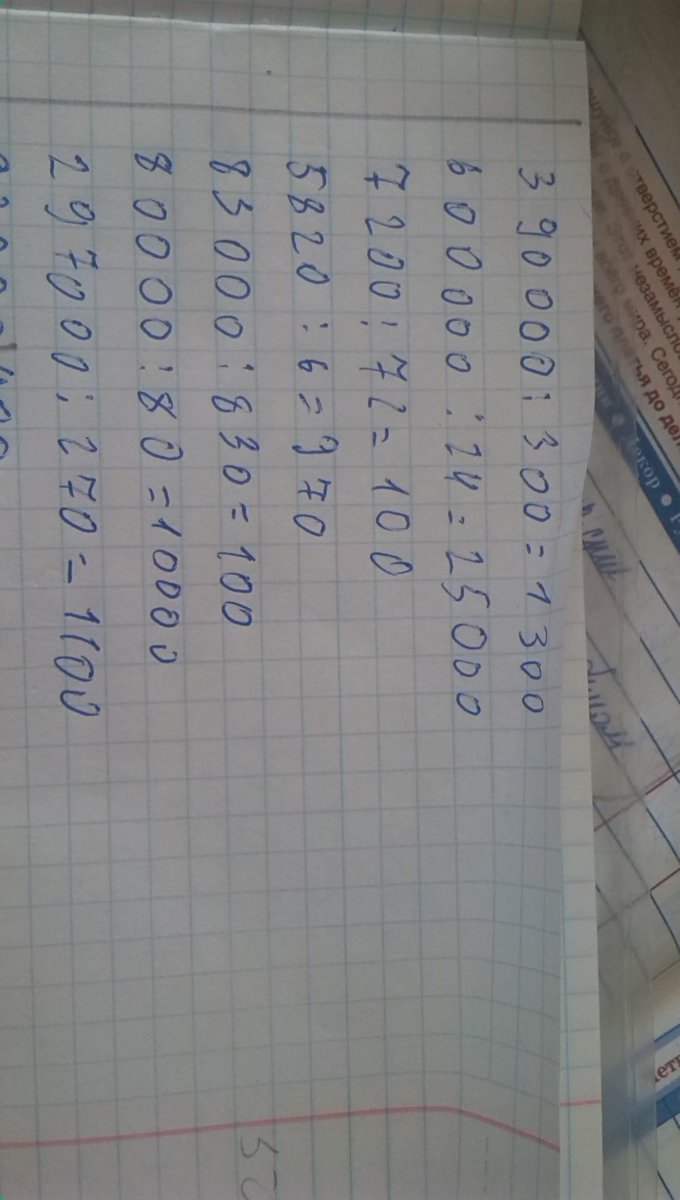 390000:300=1300
600000:24=25000
7200:72=100
5820:6=970
83000:830=100
80000:80=10000
297000:270=1100
отверстием
времён
незамысло
мира. Сегод
платья до
кор • Р